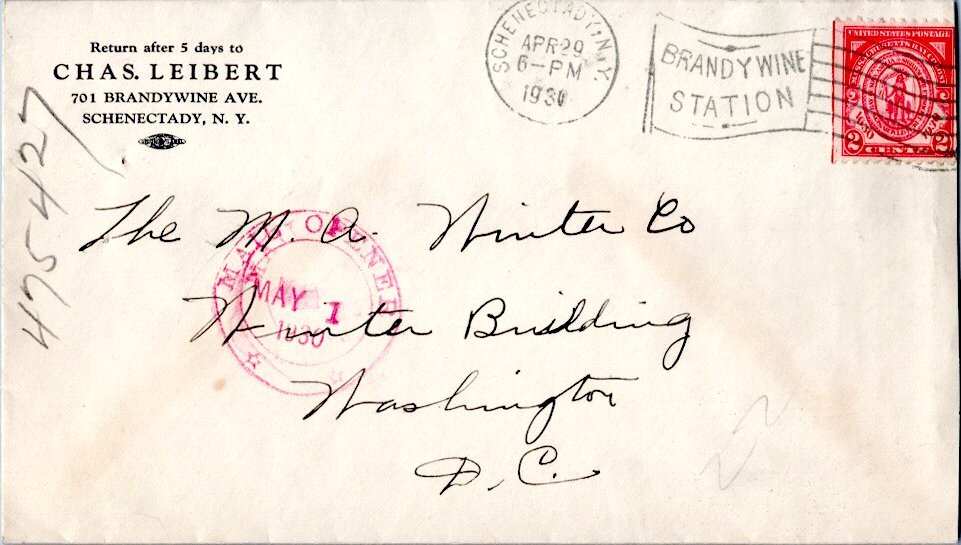 Return after 5 days to
CHAS. LEIBERT
701 BRANDYWINE AVE.
SCHENECTADY, N. Y.
SCHENECTADY, N.Y.
APR 29
6-PM
1930
BRANDYWINE
STATION
UNITED STATES POSTAGE
MASSACHUSETTS BAY COLONY
1630
2 2
475427
The M. A. Winter Co
Winter Building
Washington
D. C.
MAIL OPENED
MAY 1
1930